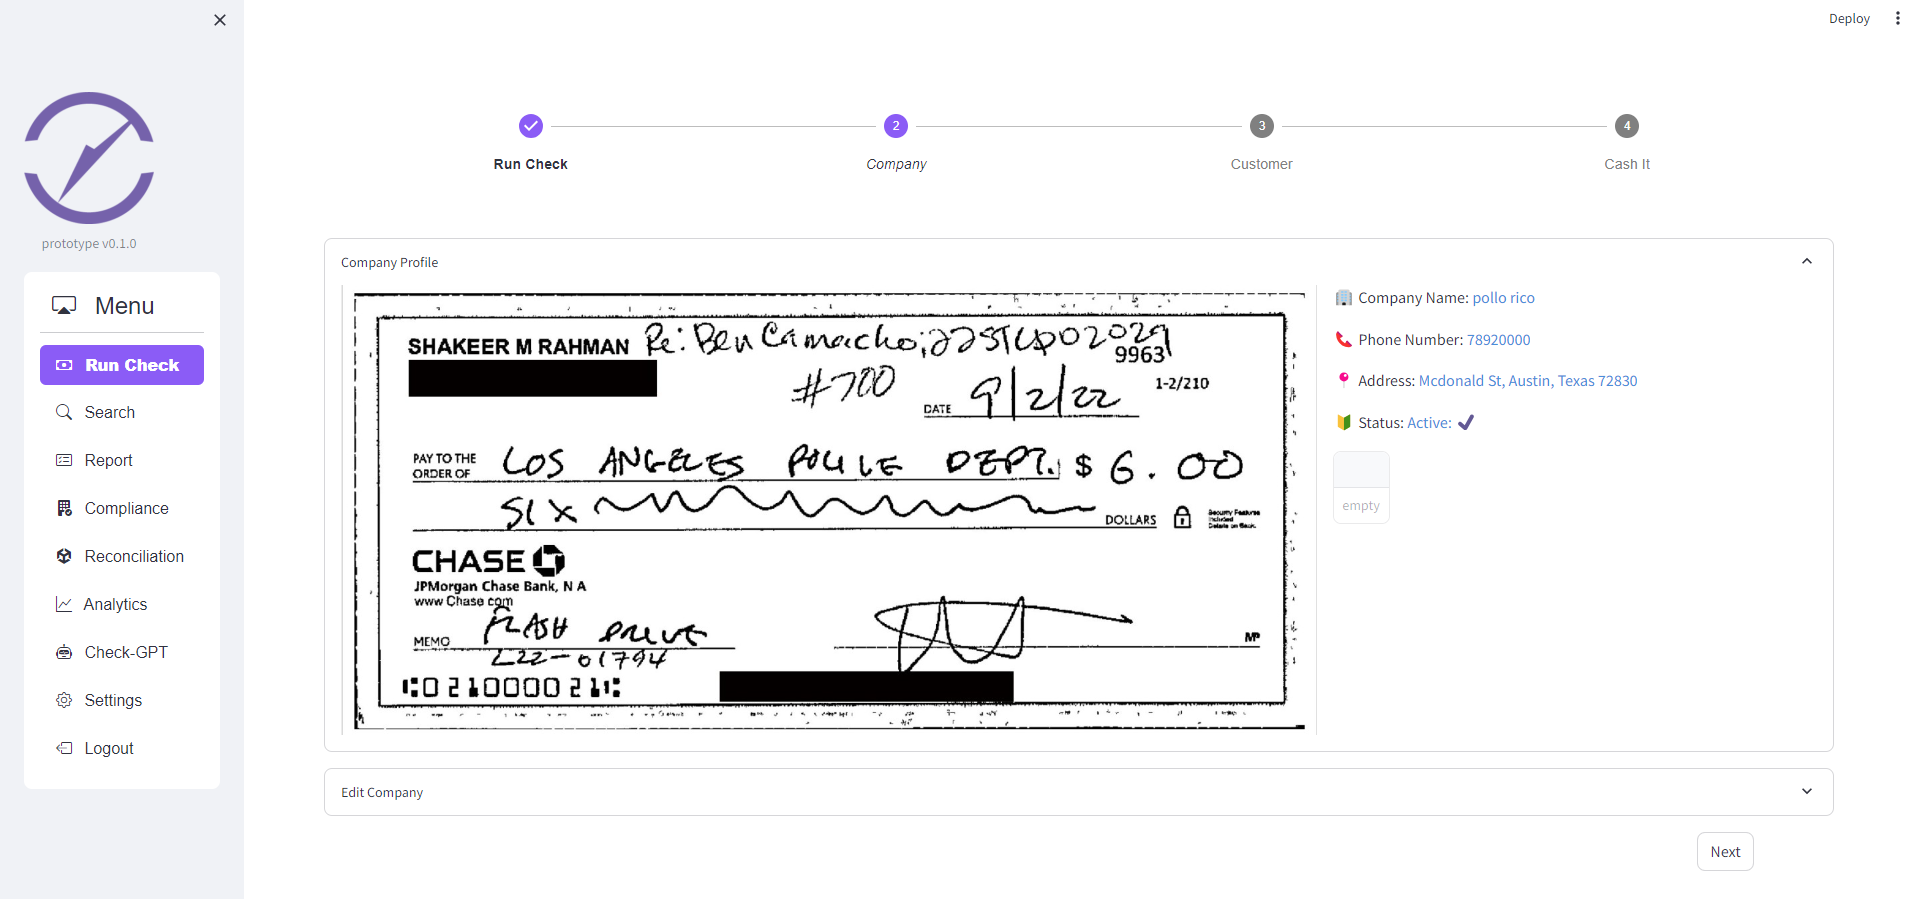 Deploy
prototype v0.1.0
Menu
Run Check
Search
Report
Compliance
Reconciliation
Analytics
Check-GPT
Settings
Logout
2
3
4
Run Check
Company
Customer
Cash It
Company Profile
SHAKEER M RAHMAN
Re: Ben Camacho; 22STCP02029
9963
#700
1-2/210
DATE 9/2/22
PAY TO THE
ORDER OF LOS ANGELES POLICE DEPT. $ 6.00
SIX DOLLARS
Security Features
Included
Details on Back.
CHASE
JPMorgan Chase Bank, N A
www Chase com
MEMO FLASH DRIVE
L22-01794
MP
021000021
Company Name: pollo rico
Phone Number: 78920000
Address: Mcdonald St, Austin, Texas 72830
Status: Active:
empty
Edit Company
Next